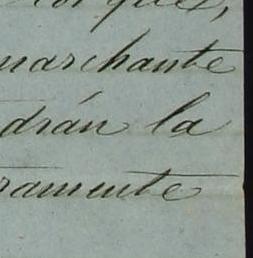 que,
marchante
drán la
ramente